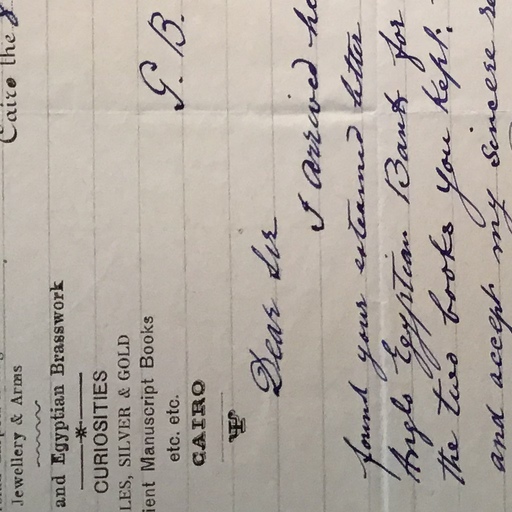 Jewellery & Arms
Cairo the 8
and Egyptian Brasswork
CURIOSITIES
LES, SILVER & GOLD
ient Manuscript Books
etc. etc.
CAIRO
G. B.
Dear Sir
I arrived he
found your esteamed letter
Anglo Egyptian Bank for
the two books you kept.
and accept my sincere re